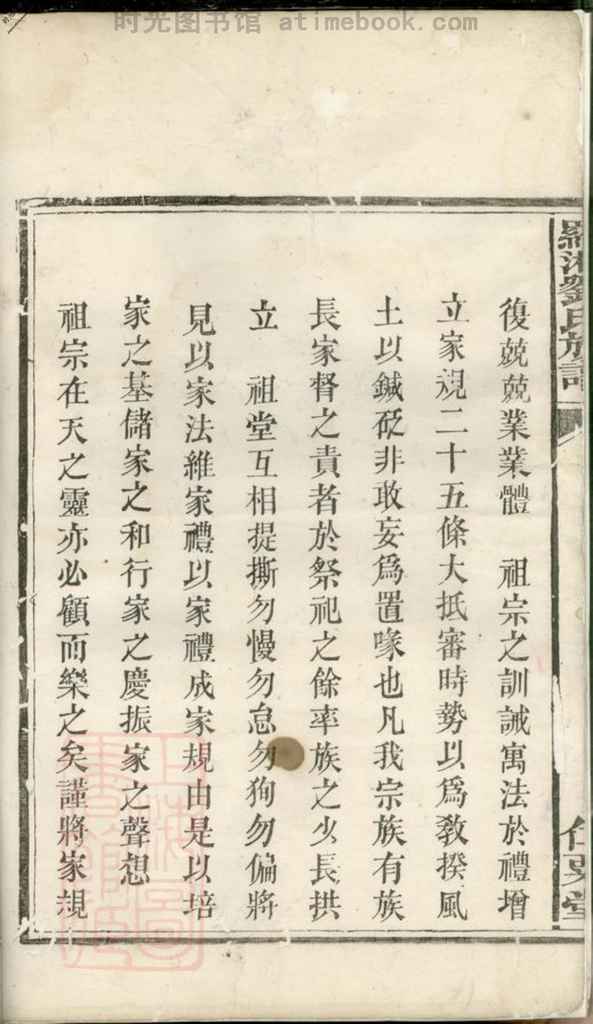 时光图书馆 atimebook.com
羅湘劉氏族譜
復兢兢業業體　祖宗之訓誡寓法於禮增
立家規二十五條大抵審時勢以爲敎揆風
土以鍼砭非敢妄爲置喙也凡我宗族有族
長家督之責者於祭祀之餘率族之少長拱
立　祖堂互相提撕勿慢勿怠勿狥勿偏將
見以家法維家禮以家禮成家規由是以培
家之基儲家之和行家之慶振家之聲想
祖宗在天之靈亦必顧而樂之矣謹將家規
上海圖書館藏